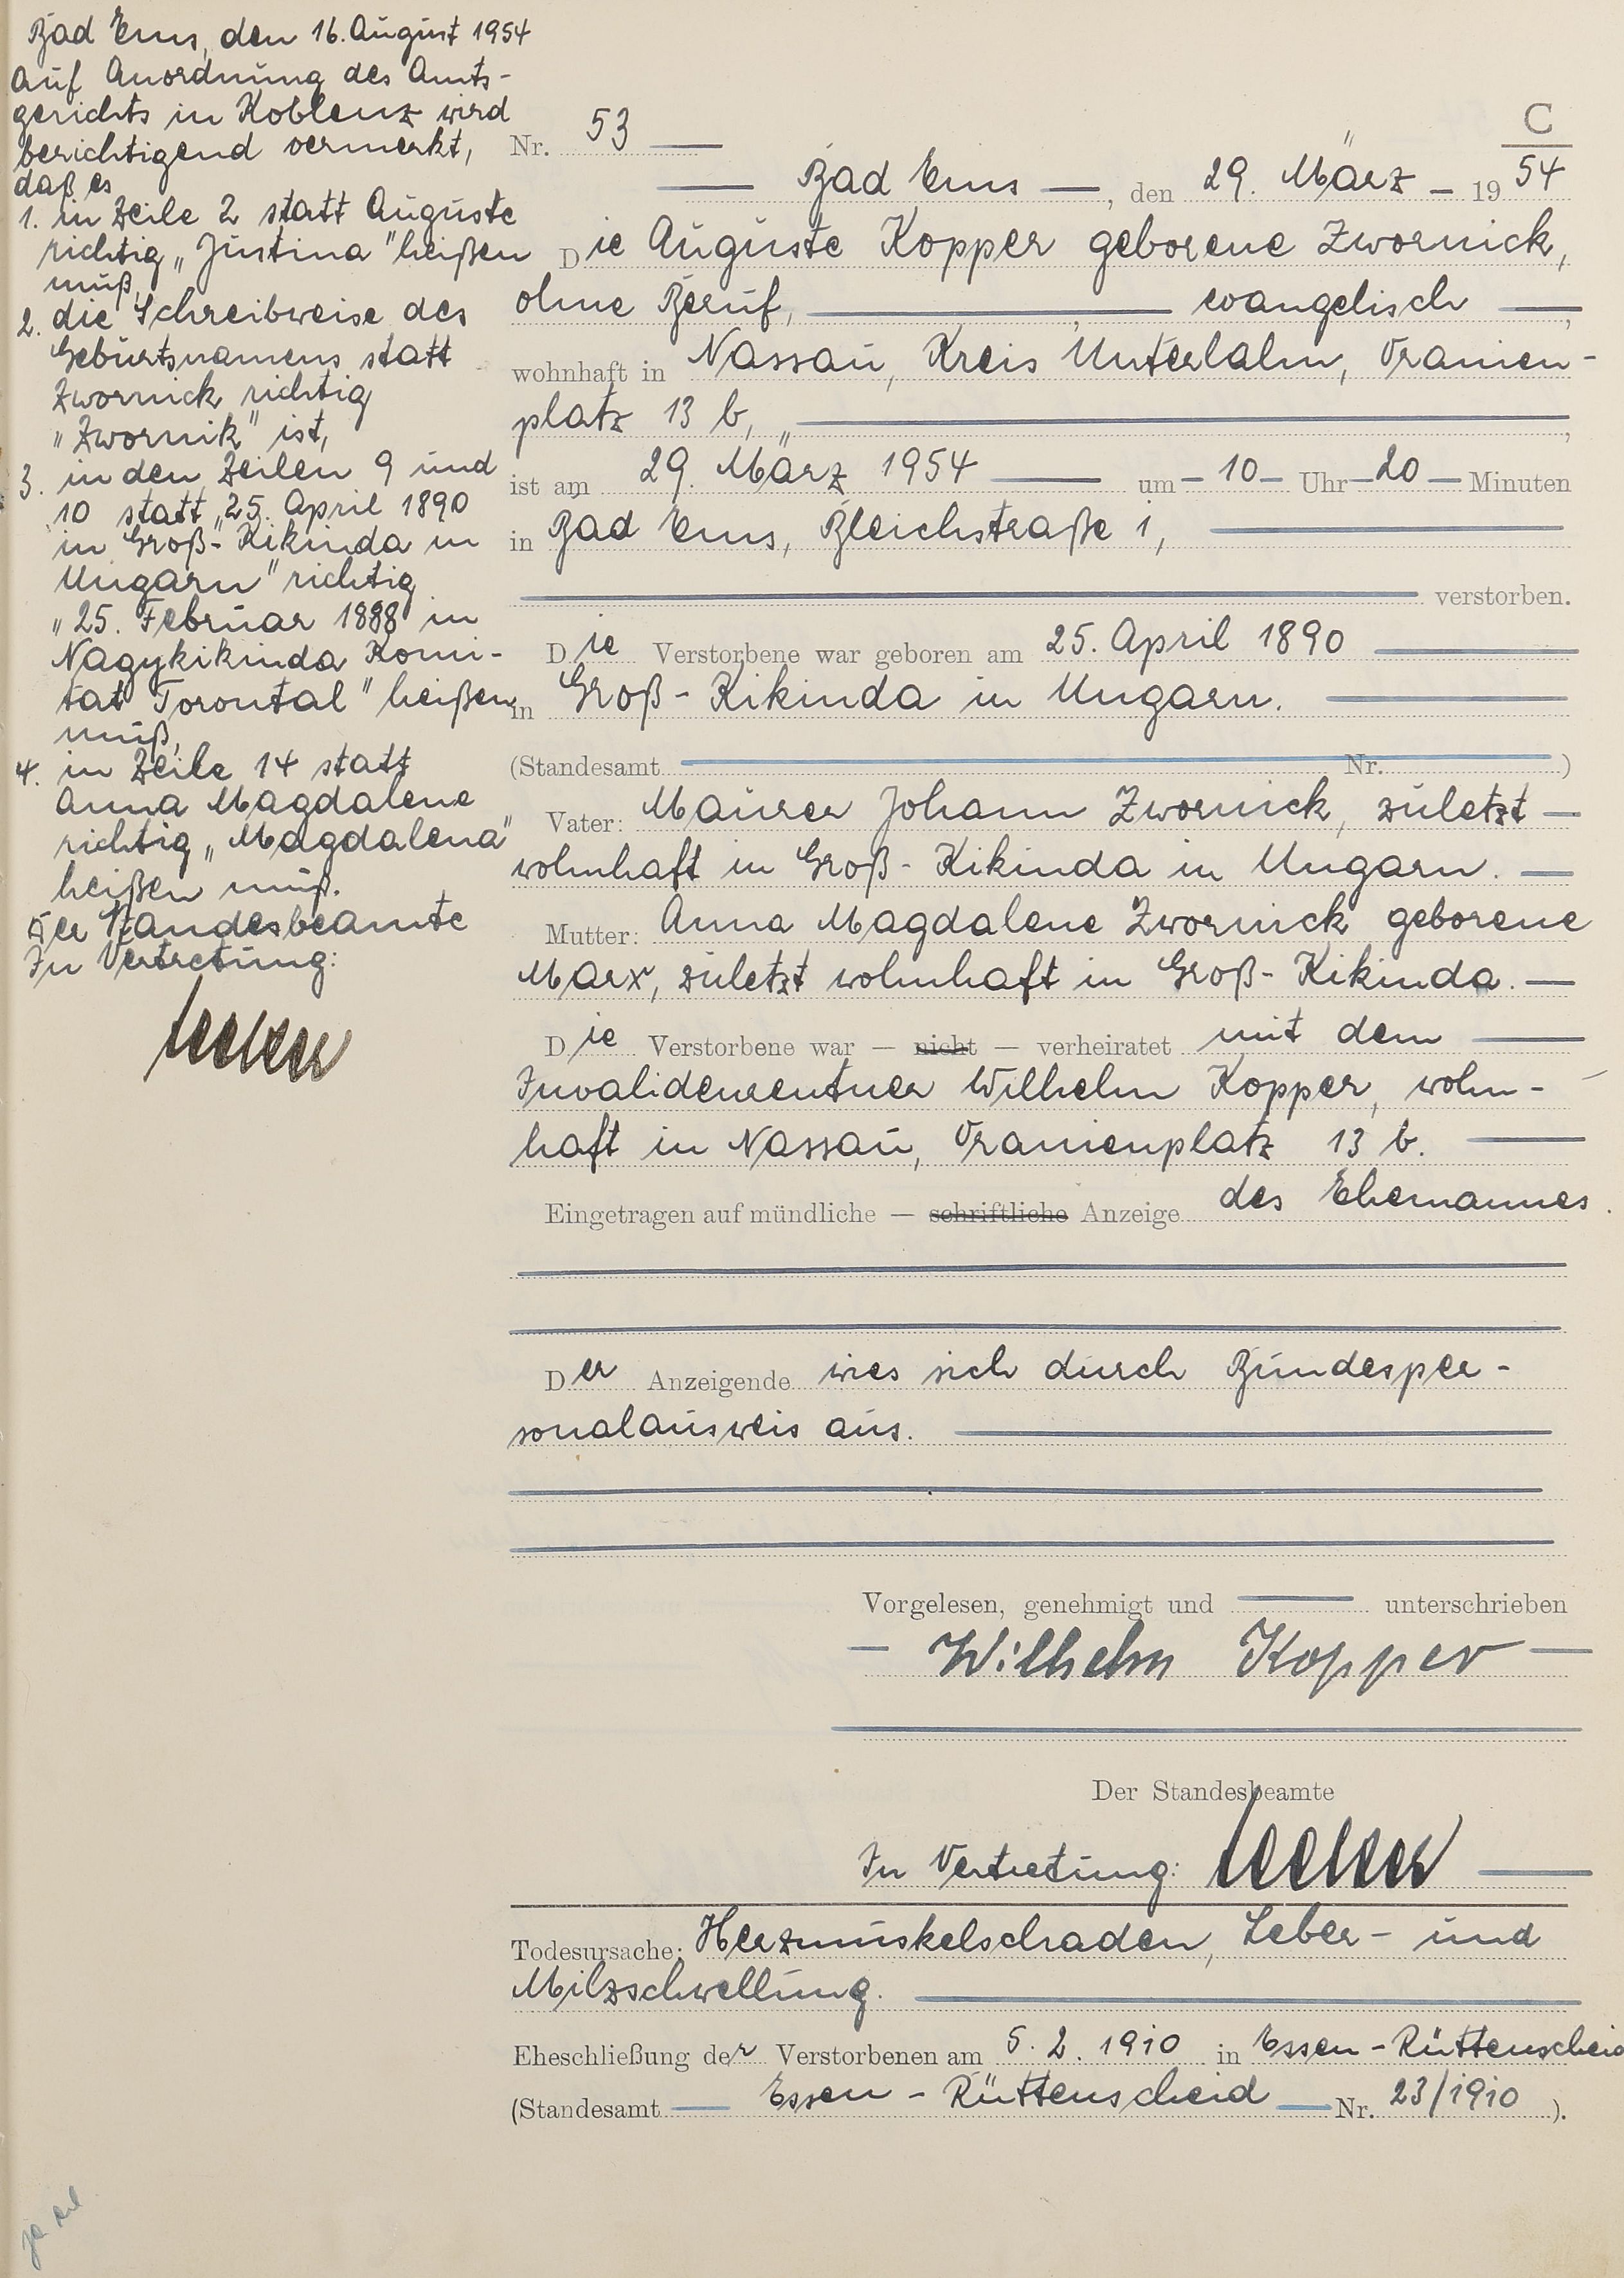 Bad Ems, den 16. August 1954
Auf Anordnung des Amts-
gerichts in Koblenz wird
berichtigend vermerkt,
daß es
1. in Zeile 2 statt Auguste
richtig „Justina" heißen
muß,
2. die Schreibweise des
Geburtsnamens statt
Zwornick richtig
„Zwornik" ist,
3. in den Zeilen 9 und
10 statt „25. April 1890
in Groß-Kikinda in
Ungarn" richtig
„25. Februar 1888 in
Nagykikinda Komi-
tat Torontal" heißen
muß,
4. in Zeile 14 statt
Anna Magdalene
richtig „Magdalena"
heißen muß.
Der Standesbeamte
In Vertretung:
C
Nr. 53
Bad Ems, den 29. März 1954
Die Auguste Kopper geborene Zwornick,
ohne Beruf, evangelisch,
wohnhaft in Nassau, Kreis Unterlahn, Oranien-
platz 13 b,
ist am 29. März 1954 um 10 Uhr 20 Minuten
in Bad Ems, Bleichstraße 1,
verstorben.
Die Verstorbene war geboren am 25. April 1890
in Groß-Kikinda in Ungarn.
(Standesamt Nr. )
Vater: Maurer Johann Zwornick, zuletzt
wohnhaft in Groß-Kikinda in Ungarn.
Mutter: Anna Magdalene Zwornick geborene
Marx, zuletzt wohnhaft in Groß-Kikinda.
Die Verstorbene war — nicht — verheiratet mit dem
Invalidenrentner Wilhelm Kopper, wohn-
haft in Nassau, Oranienplatz 13 b.
Eingetragen auf mündliche — schriftliche Anzeige des Ehemannes.
Der Anzeigende wies sich durch Bundesper-
sonalausweis aus.
Vorgelesen, genehmigt und unterschrieben
Wilhelm Kopper
Der Standesbeamte
In Vertretung:
Todesursache: Herzmuskelschaden, Leber- und
Milzschwellung.
Eheschließung der Verstorbenen am 5.2.1910 in Essen-Rüttenscheid
(Standesamt Essen-Rüttenscheid Nr. 23/1910 ).